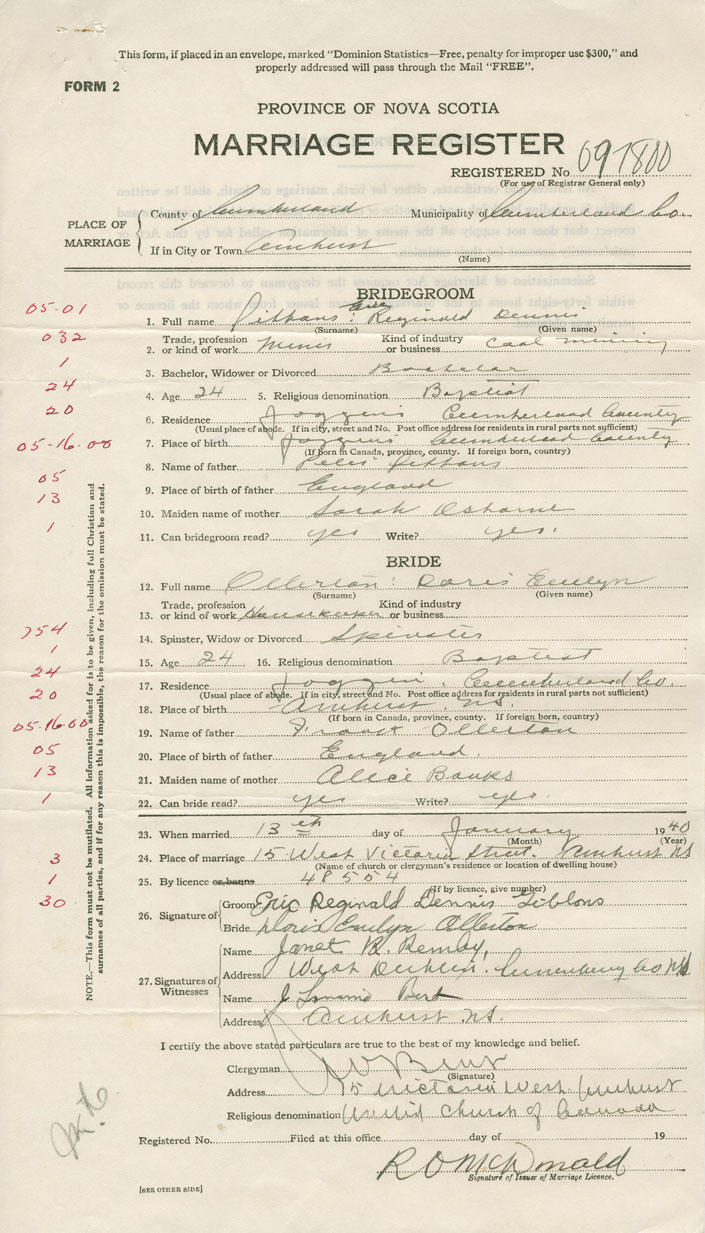 This form, if placed in an envelope, marked "Dominion Statistics—Free, penalty for improper use $300," and
properly addressed will pass through the Mail "FREE".
FORM 2
PROVINCE OF NOVA SCOTIA
MARRIAGE REGISTER
REGISTERED No 097800
(For use of Registrar General only)
PLACE OF MARRIAGE
County of Cumberland Municipality of Cumberland Co.
If in City or Town Amherst
(Name)
BRIDEGROOM
05-01
1. Full name Gibbons: Eric Reginald Dennis
(Surname) (Given name)
032
2. Trade, profession or kind of work Miner Kind of industry or business Coal Mining
1
3. Bachelor, Widower or Divorced Bachelor
24
4. Age 24 5. Religious denomination Baptist
20
6. Residence Joggins Cumberland County
(Usual place of abode. If in city, street and No. Post office address for residents in rural parts not sufficient)
05-16.00
7. Place of birth Joggins Cumberland County
(If born in Canada, province, county. If foreign born, country)
8. Name of father Gibbons
05
9. Place of birth of father England
13
10. Maiden name of mother Sarah Osborne
1
11. Can bridegroom read? yes Write? yes.
BRIDE
12. Full name Ollerton: Doris Emelyn
(Surname) (Given name)
13. Trade, profession or kind of work Housekeeper Kind of industry or business
754
14. Spinster, Widow or Divorced Spinster
1
15. Age 24 16. Religious denomination Baptist
24
17. Residence Joggins Cumberland Co.
(Usual place of abode. If in city, street and No. Post office address for residents in rural parts not sufficient)
20
18. Place of birth Amherst N.S.
(If born in Canada, province, county. If foreign born, country)
05.16.00
19. Name of father Ollerton
05
20. Place of birth of father England.
13
21. Maiden name of mother Alice Banks
1
22. Can bride read? yes Write? yes.
23. When married 13th day of January 1940
(Month) (Year)
3
24. Place of marriage 15 West Victoria Street. Amherst NS
(Name of church or clergyman's residence or location of dwelling house)
1
25. By licence or banns 48554
(If by licence, give number)
30
26. Signature of
Groom Eric Reginald Dennis Gibbons
Bride Doris Emelyn Ollerton
27. Signatures of Witnesses
Name Janet R.
Address West Dublin. Lunenburg Co NS
Name J
Address Amherst N.S.
NOTE.—This form must not be mutilated. All information asked for is to be given, including full Christian and
surnames of all parties, and if for any reason this is impossible, the reason for the omission must be stated.
I certify the above stated particulars are true to the best of my knowledge and belief.
Clergyman
(Signature)
Address 15 Victoria West. Amherst
Religious denomination United Church of Canada
Registered No. Filed at this office day of 19
R O McDonald
Signature of Issuer of Marriage Licence.
[SEE OTHER SIDE]